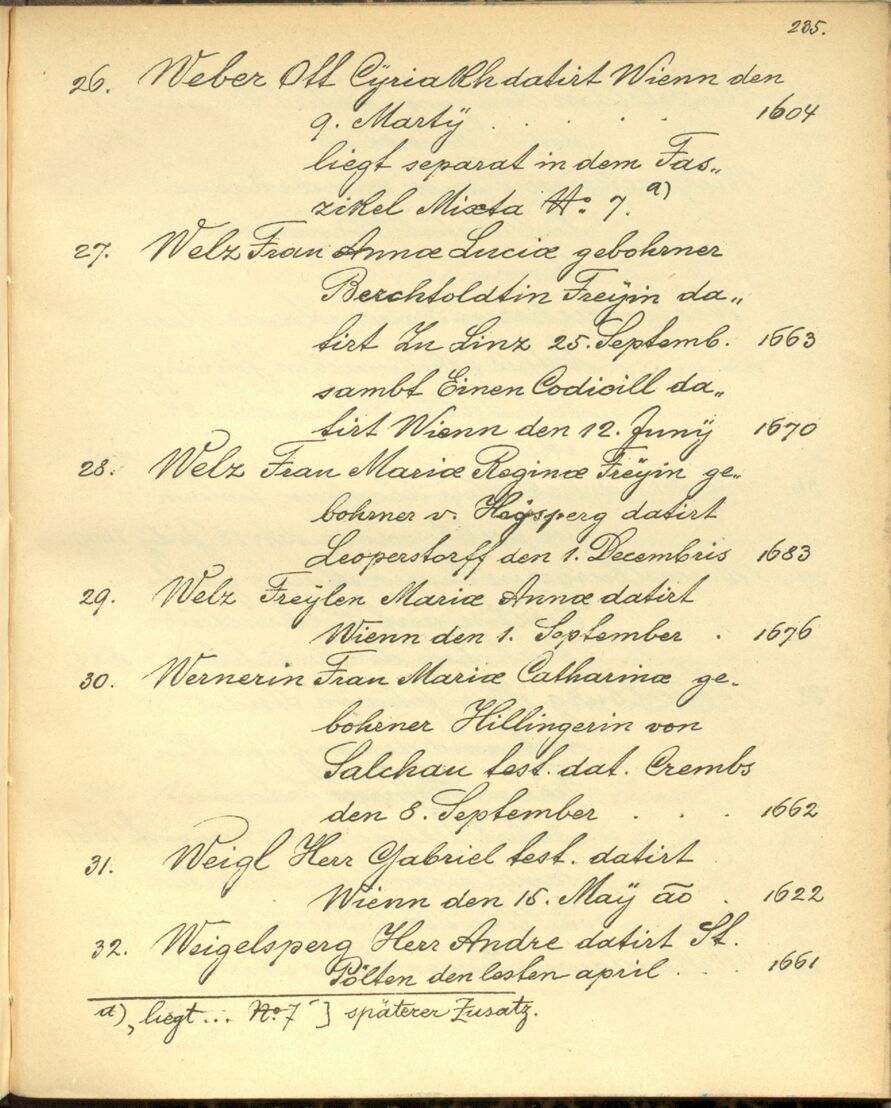 235.
26. Weber Ott Cÿriakh datirt Wienn den
9. Martÿ . . . . . 1604
liegt separat in dem Fas„
zikel Mixta No. 7. a)
27. Welz Frau Annæ Luciæ gebohrner
Berchtoldtin Freÿin da„
tirt Zu Linz 25. Septemb. 1663
sambt Einen Codicill da„
tirt Wienn den 12. Junÿ 1670
28. Welz Frau Mariæ Reginæ Freÿin ge„
bohrner v. datirt
Leoperstorff den 1. Decembris 1683
29. Welz Freÿlen Mariæ Annæ datirt
Wienn den 1. September . 1676
30. Wernerin Frau Mariæ Catharinæ ge-
bohrner Hillingerin von
Salchau test. dat. Crembs
den 8. September . . . 1662
31. Weigl Herr Gabriel test. datirt
Wienn den 15. Maÿ a͞o . 1622
32. Weigelsperg Herr Andre datirt St.
Pölten den lesten april . . 1661
a) „liegt... No. 7“] späterer Zusatz.